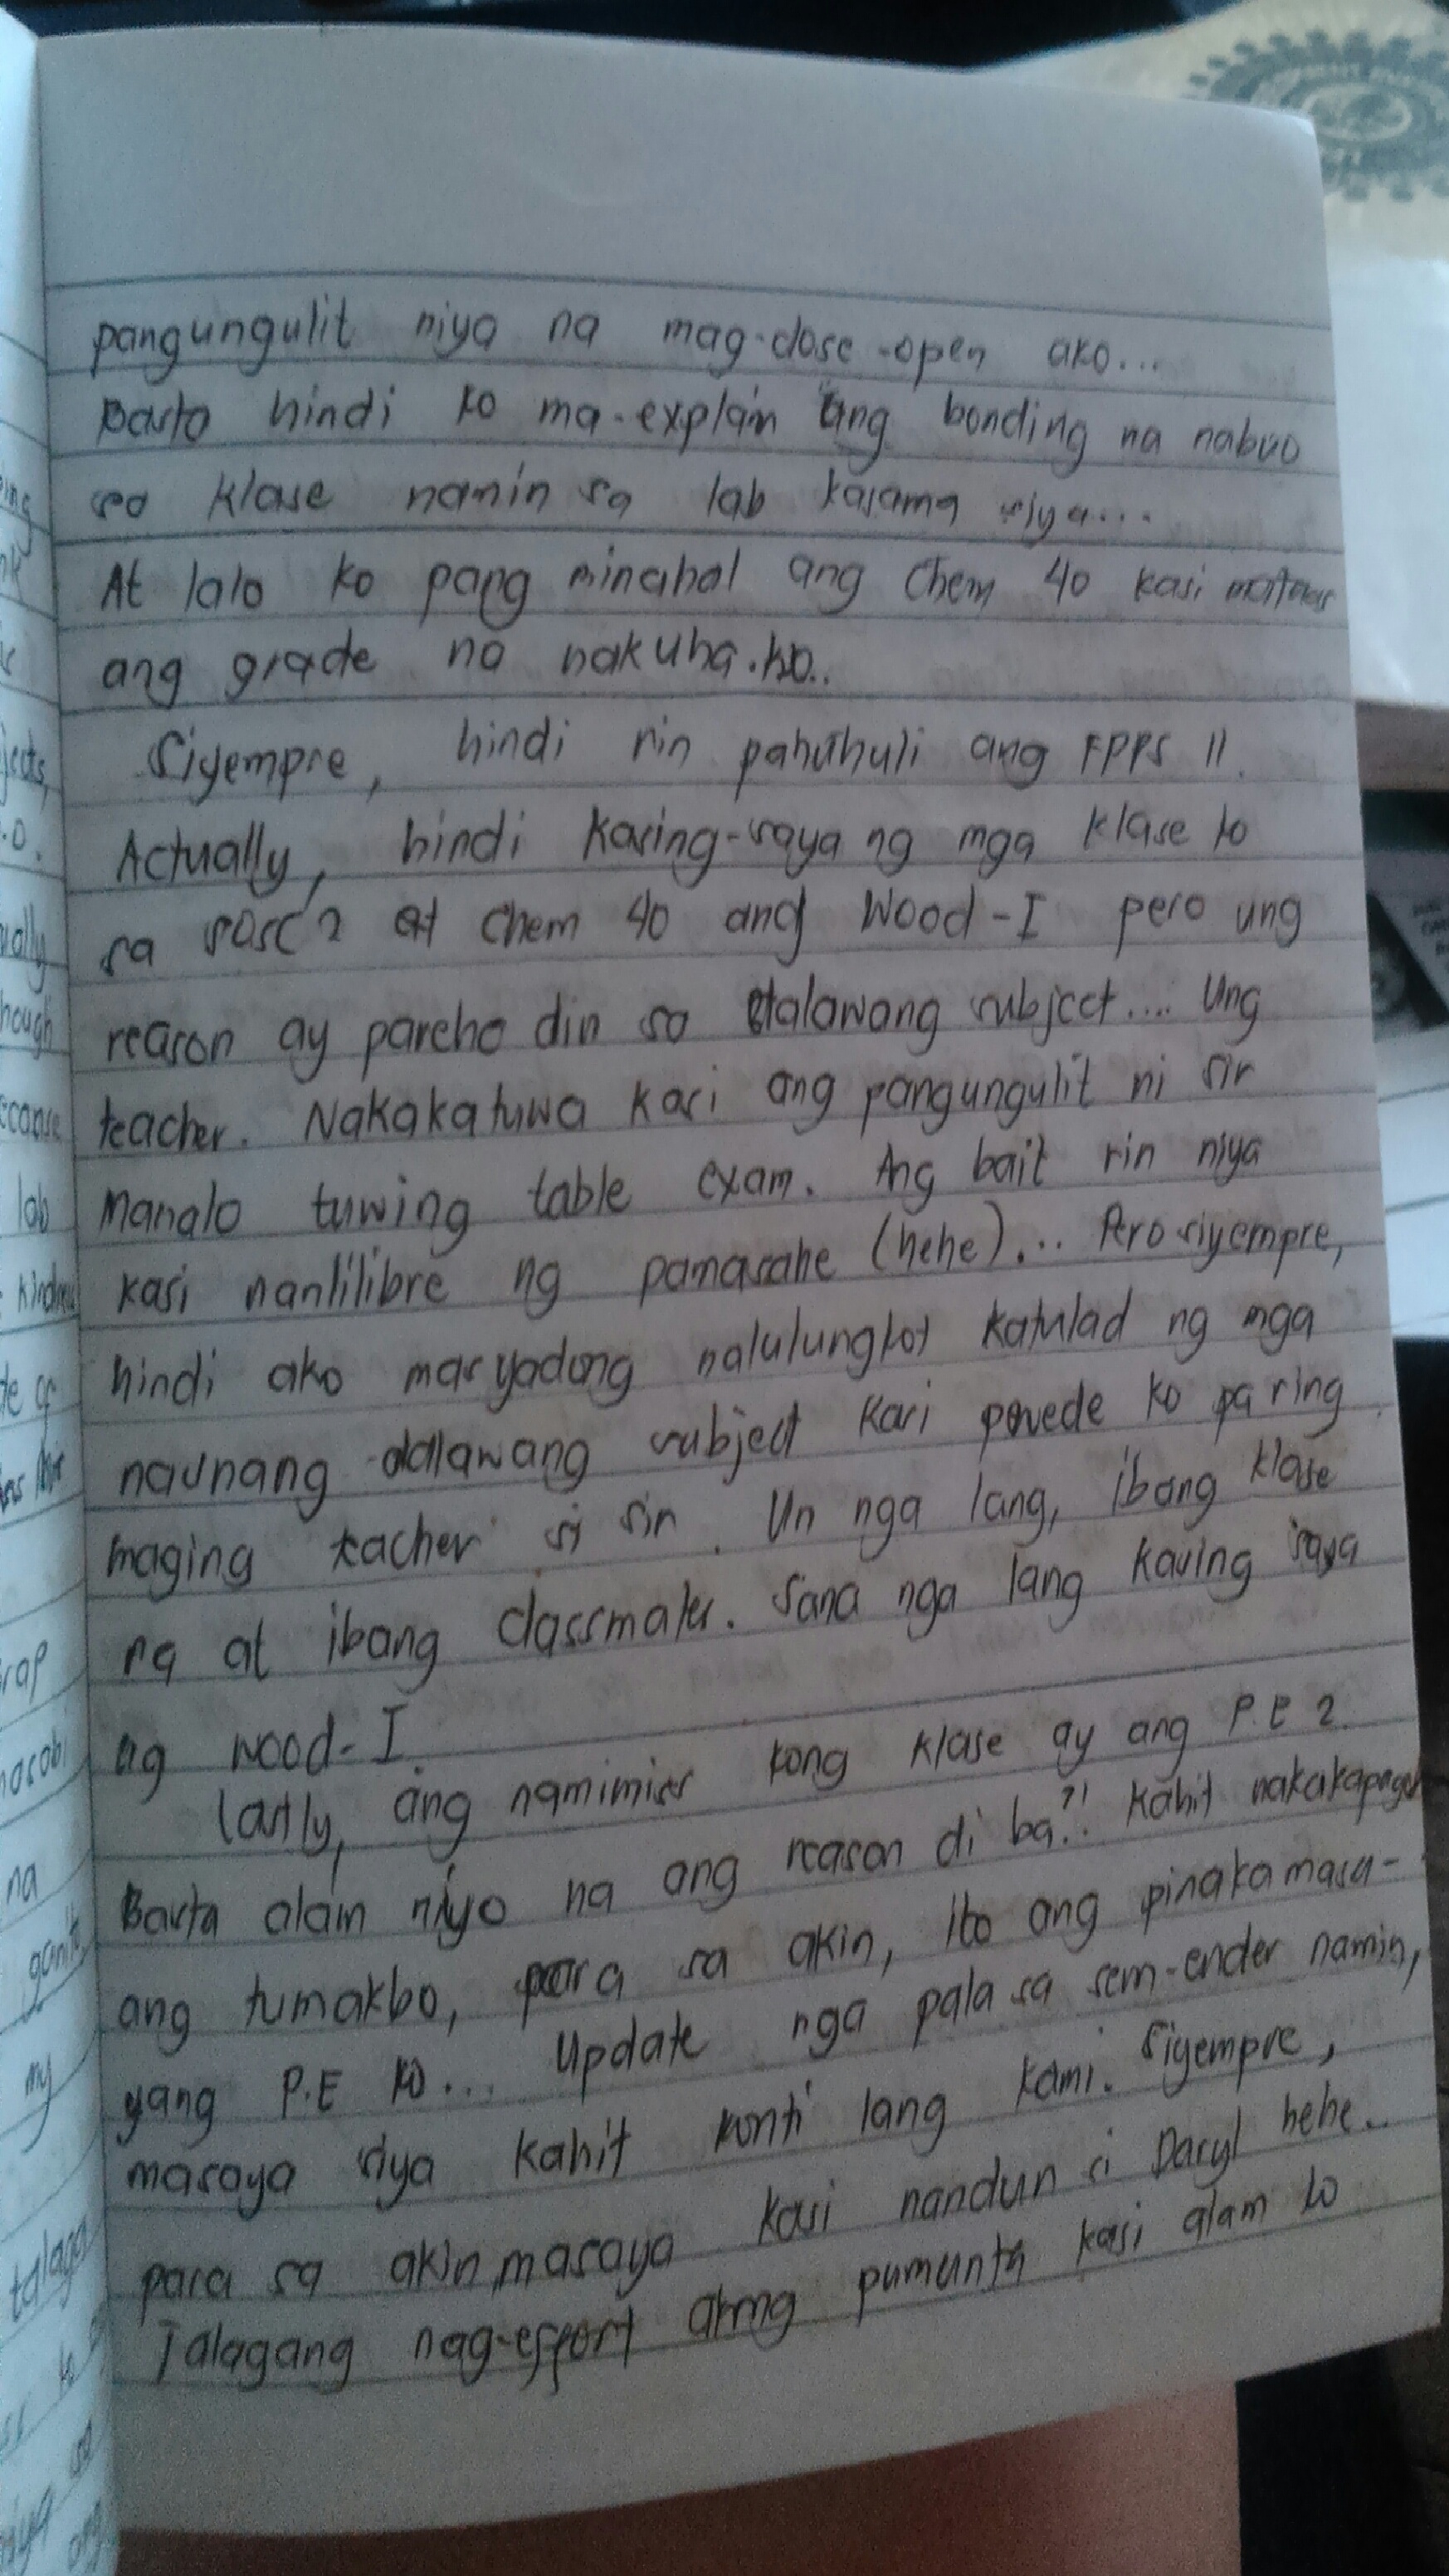 pangungulit niya na mag-close-open ako...
Basta hindi ko ma-explain ang bonding na nabuo
sa klase namin sa lab kasama siya...
At lalo ko pang minahal ang Chem 40 kasi mataas
ang grade na nakuha ko..
Siyempre, hindi rin pahuhuli ang FPPS 11.
Actually, hindi kasing-saya ng mga klase ko
sa SOSC 2 at Chem 40 ang Wood-I pero ung
reason ay pareho din sa dalawang subject.... Ung
teacher. Nakakatuwa kasi ang pangungulit ni sir
Manalo tuwing table exam. Ang bait rin niya
kasi nanlilibre ng pamasahe (hehe)... Pero siyempre,
hindi ako masyadong nalulungkot katulad ng mga
naunang dalawang subject kasi pwede ko pa ring
maging teacher si sir. Un nga lang, ibang klase
na at ibang classmates. Sana nga lang kasing saya
ng Wood-I.
Lastly, ang namimiss kong klase ay ang P.E 2.
Basta alam niyo na ang reason di ba?! Kahit nakakapagod
ang tumakbo, para sa akin, ito ang pinakamasa-
yang P.E ko... Update nga pala sa sem-ender namin,
masaya siya kahit konti lang kami. Siyempre,
para sa akin, masaya kasi nandun si Daryl hehe..
Talagang nag-effort akong pumunta kasi alam ko